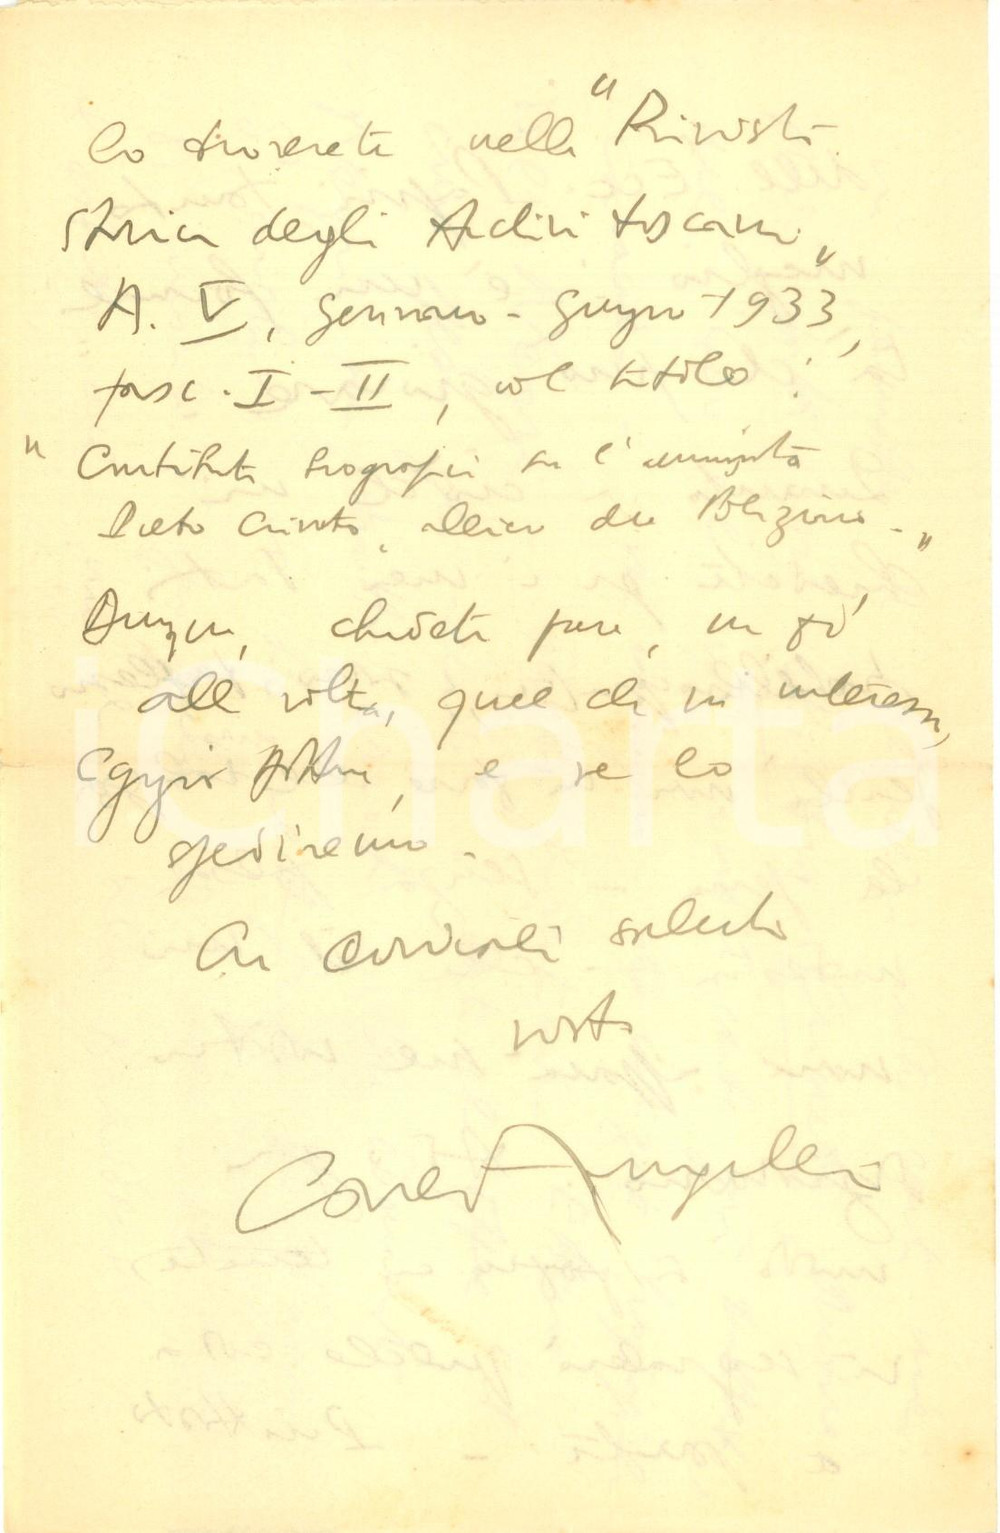 lo troverete nella "Rivista
Storica degli Archivi toscani"
A. V, gennaio-giugno 1933,
fasc. I-II, col titolo:
"Contributi biografici su l'umanista
Pietro Crinito, allievo del Poliziano."
Dunque, chiedete pure, un po'
alla volta, quel che vi interessa,
Egregio, e ve lo
spediremo.
Cordiali saluti
vostro
Carlo Angeleri
iCharta